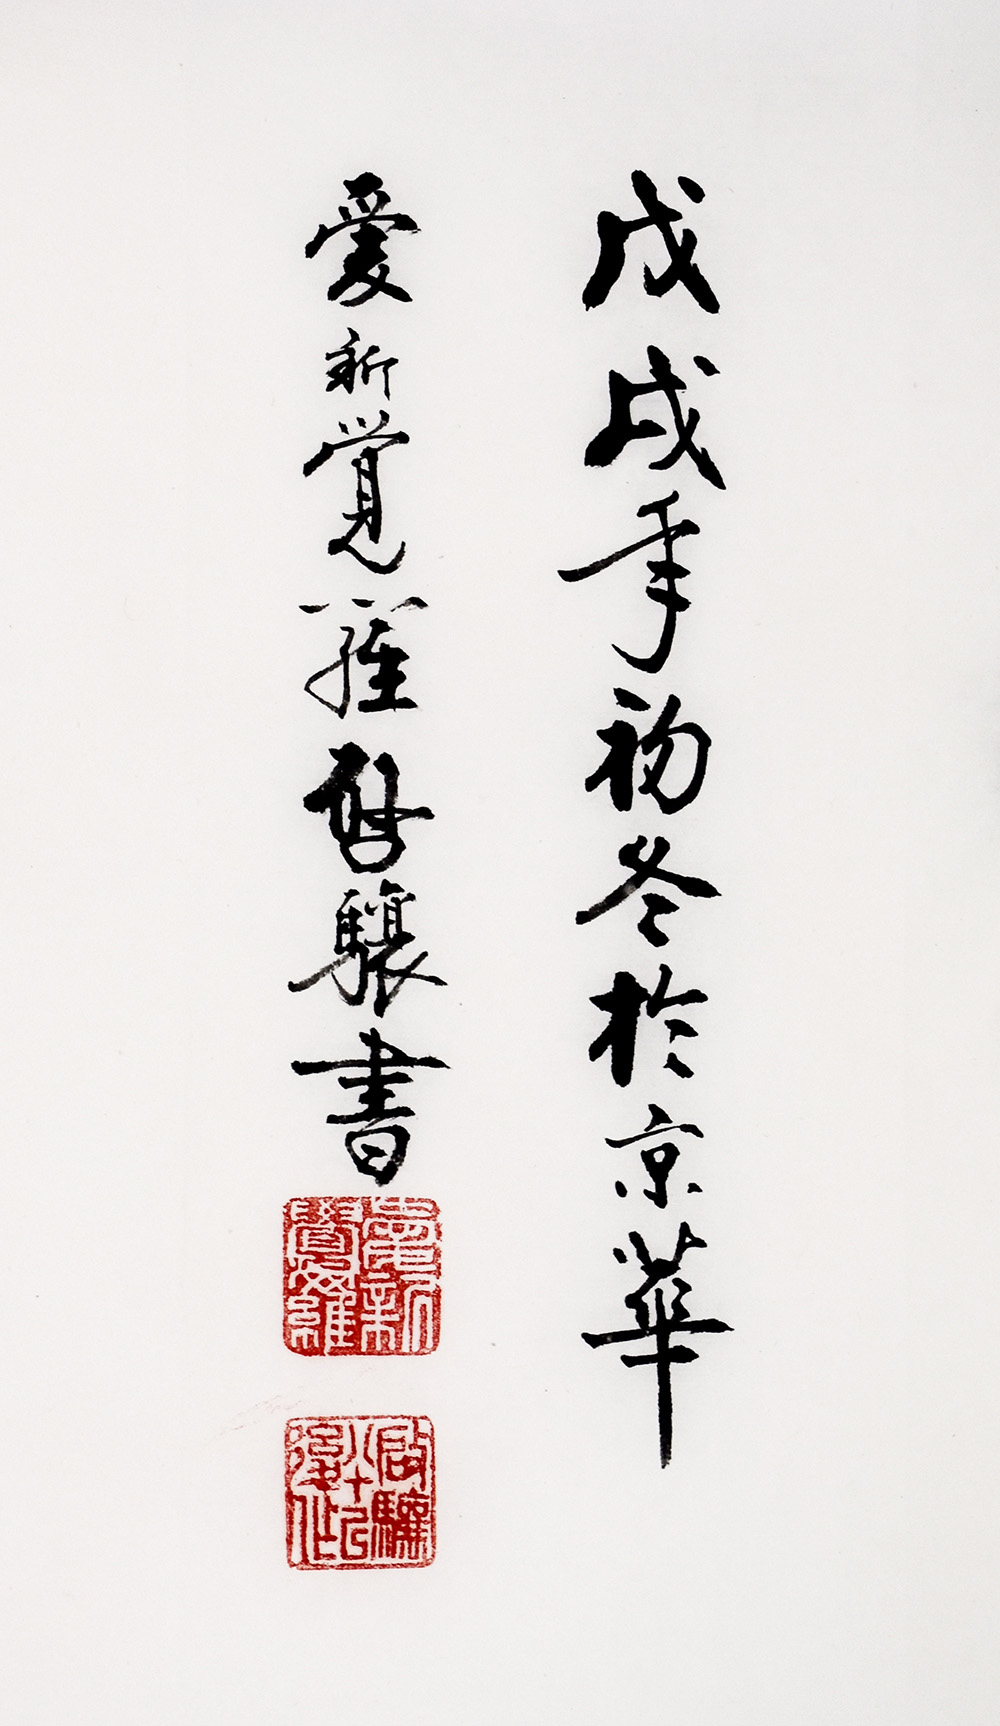 戊戌年初冬於京華
愛新覺羅啓驤書
愛新覺羅
啟驤八十以後作